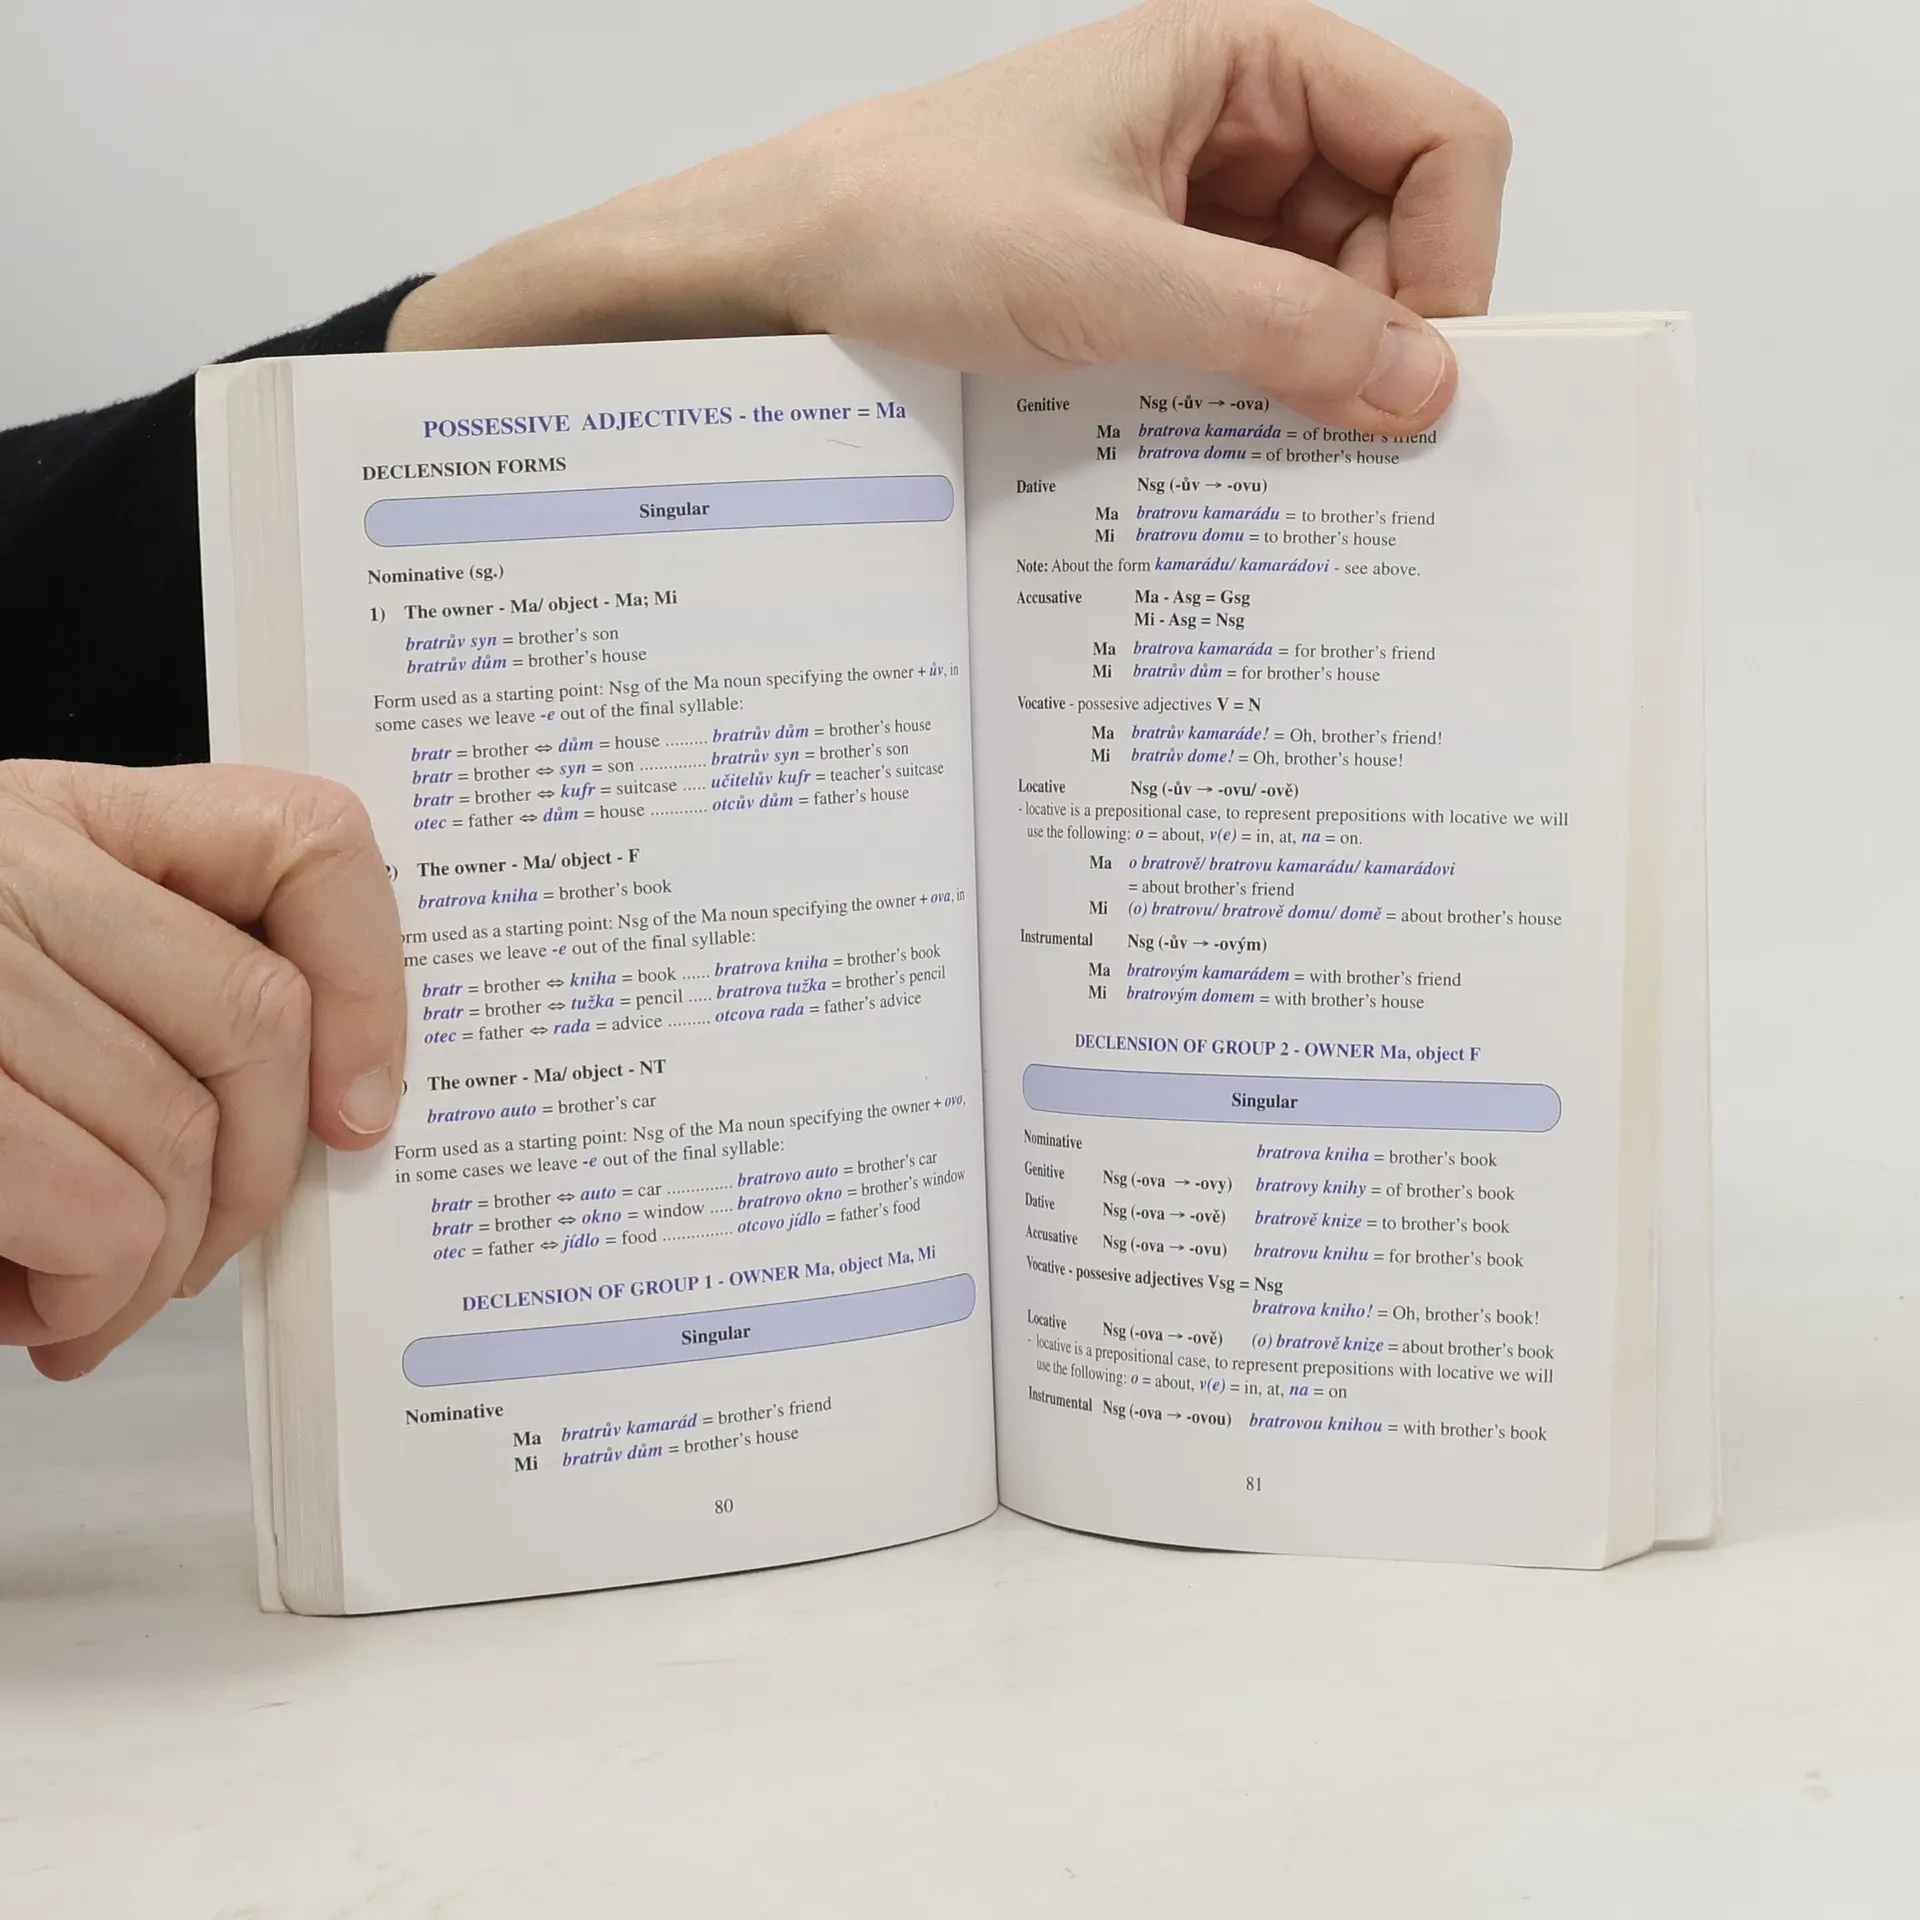 POSSESSIVE ADJECTIVES - the owner = Ma
DECLENSION FORMS
Singular
Nominative (sg.)
1) The owner - Ma/ object - Ma; Mi
bratrův syn = brother's son
bratrův dům = brother's house
Form used as a starting point: Nsg of the Ma noun specifying the owner + ův, in
some cases we leave -e out of the final syllable:
bratr = brother ⇔ dům = house ......... bratrův dům = brother's house
bratr = brother ⇔ syn = son .............. bratrův syn = brother's son
bratr = brother ⇔ kufr = suitcase ..... učitelův kufr = teacher's suitcase
otec = father ⇔ dům = house ............ otcův dům = father's house
) The owner - Ma/ object - F
bratrova kniha = brother's book
used as a starting point: Nsg of the Ma noun specifying the owner + ova, in
cases we leave -e out of the final syllable:
bratr = brother ⇔ kniha = book ...... bratrova kniha = brother's book
bratr = brother ⇔ tužka = pencil ..... bratrova tužka = brother's pencil
otec = father ⇔ rada = advice ......... otcova rada = father's advice
) The owner - Ma/ object - NT
bratrovo auto = brother's car
Form used as a starting point: Nsg of the Ma noun specifying the owner + ovo,
in some cases we leave -e out of the final syllable:
bratr = brother ⇔ auto = car .............. bratrovo auto = brother's car
bratr = brother ⇔ okno = window ..... bratrovo okno = brother's window
otec = father ⇔ jídlo = food ............... otcovo jídlo = father's food
DECLENSION OF GROUP 1 - OWNER Ma, object Ma, Mi
Singular
Nominative
Ma bratrův kamarád = brother's friend
Mi bratrův dům = brother's house
80
Genitive Nsg (-ův → -ova)
Ma bratrova kamaráda = of brother's friend
Mi bratrova domu = of brother's house
Dative Nsg (-ův → -ovu)
Ma bratrovu kamarádu = to brother's friend
Mi bratrovu domu = to brother's house
Note: About the form kamarádu/ kamarádovi - see above.
Accusative Ma - Asg = Gsg
Mi - Asg = Nsg
Ma bratrova kamaráda = for brother's friend
Mi bratrův dům = for brother's house
Vocative - possesive adjectives V = N
Ma bratrův kamaráde! = Oh, brother's friend!
Mi bratrův dome! = Oh, brother's house!
Locative Nsg (-ův → -ovu/ -ově)
- locative is a prepositional case, to represent prepositions with locative we will
use the following: o = about, v(e) = in, at, na = on.
Ma o bratrově/ bratrovu kamarádu/ kamarádovi
= about brother's friend
Mi (o) bratrovu/ bratrově domu/ domě = about brother's house
Instrumental Nsg (-ův → -ovým)
Ma bratrovým kamarádem = with brother's friend
Mi bratrovým domem = with brother's house
DECLENSION OF GROUP 2 - OWNER Ma, object F
Singular
Nominative bratrova kniha = brother's book
Genitive Nsg (-ova → -ovy) bratrovy knihy = of brother's book
Dative Nsg (-ova → -ově) bratrově knize = to brother's book
Accusative Nsg (-ova → -ovu) bratrovu knihu = for brother's book
Vocative - possesive adjectives Vsg = Nsg
bratrova kniho! = Oh, brother's book!
Locative Nsg (-ova → -ově) (o) bratrově knize = about brother's book
- locative is a prepositional case, to represent prepositions with locative we will
use the following: o = about, v(e) = in, at, na = on
Instrumental Nsg (-ova → -ovou) bratrovou knihou = with brother's book
81